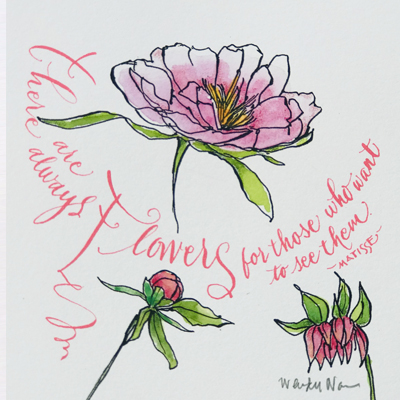 there are
always
Flowers
for those who want
to see them.
~MATISSE~